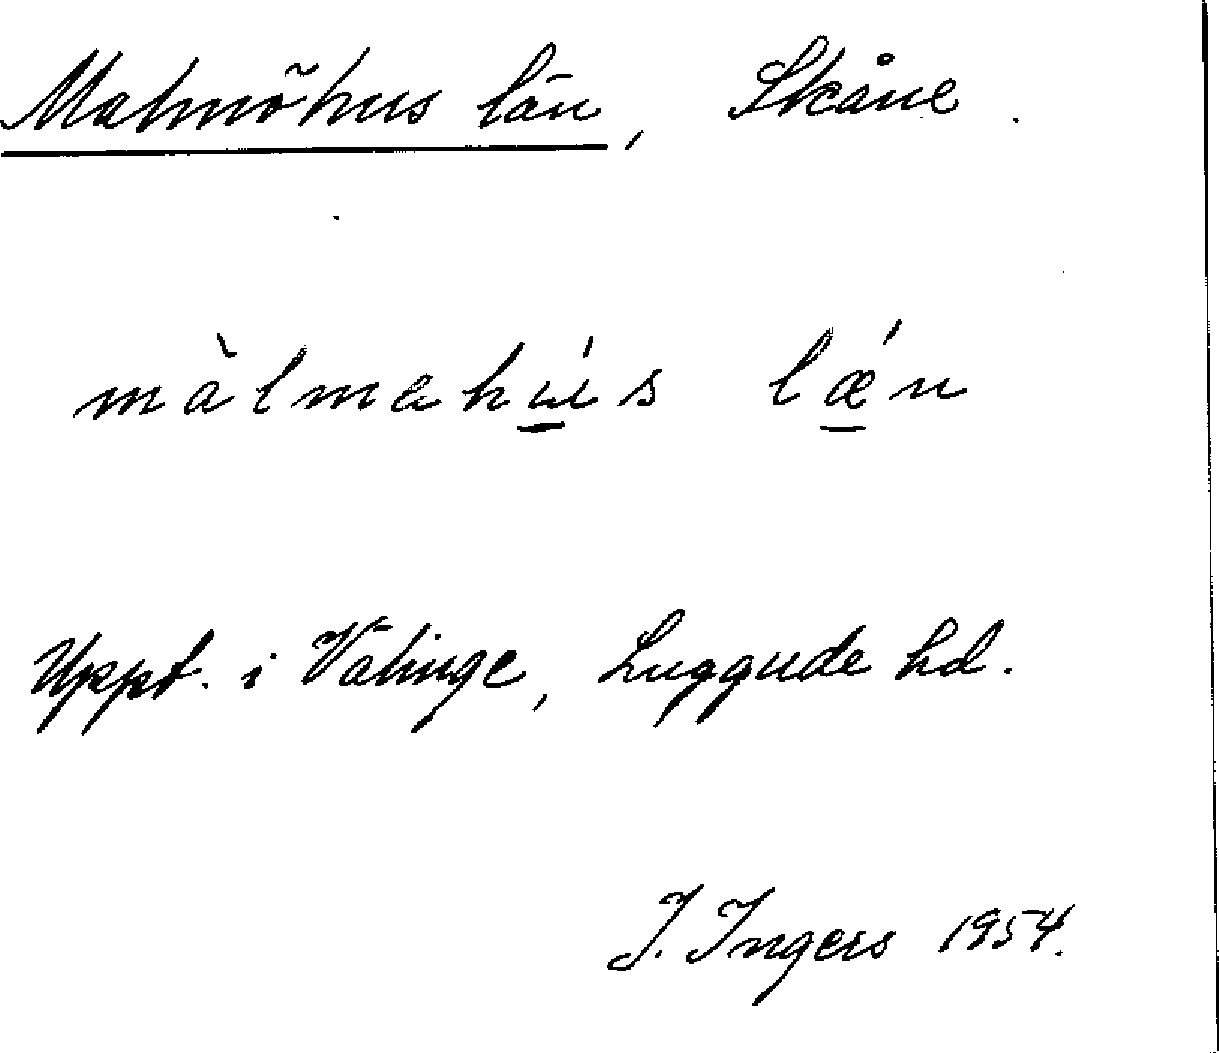 Malmöhus län, Skåne.
màlmahú̲s lǽ̲n
Uppt. i Välinge, Luggude hd.
I. Ingers 1954.